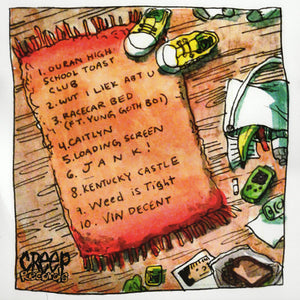 1. OURAN HIGH
SCHOOL TOAST
CLUB
2. WUT I LIEK ABT U
3. RACECAR BED
(FT. YUNG GOTH BOI)
4. CAITLYN
5. LOADING SCREEN
6. JANK!
8. KENTUCKY CASTLE
9. Weed is Tight
10. VIN DECENT
CREEP
RECORDS